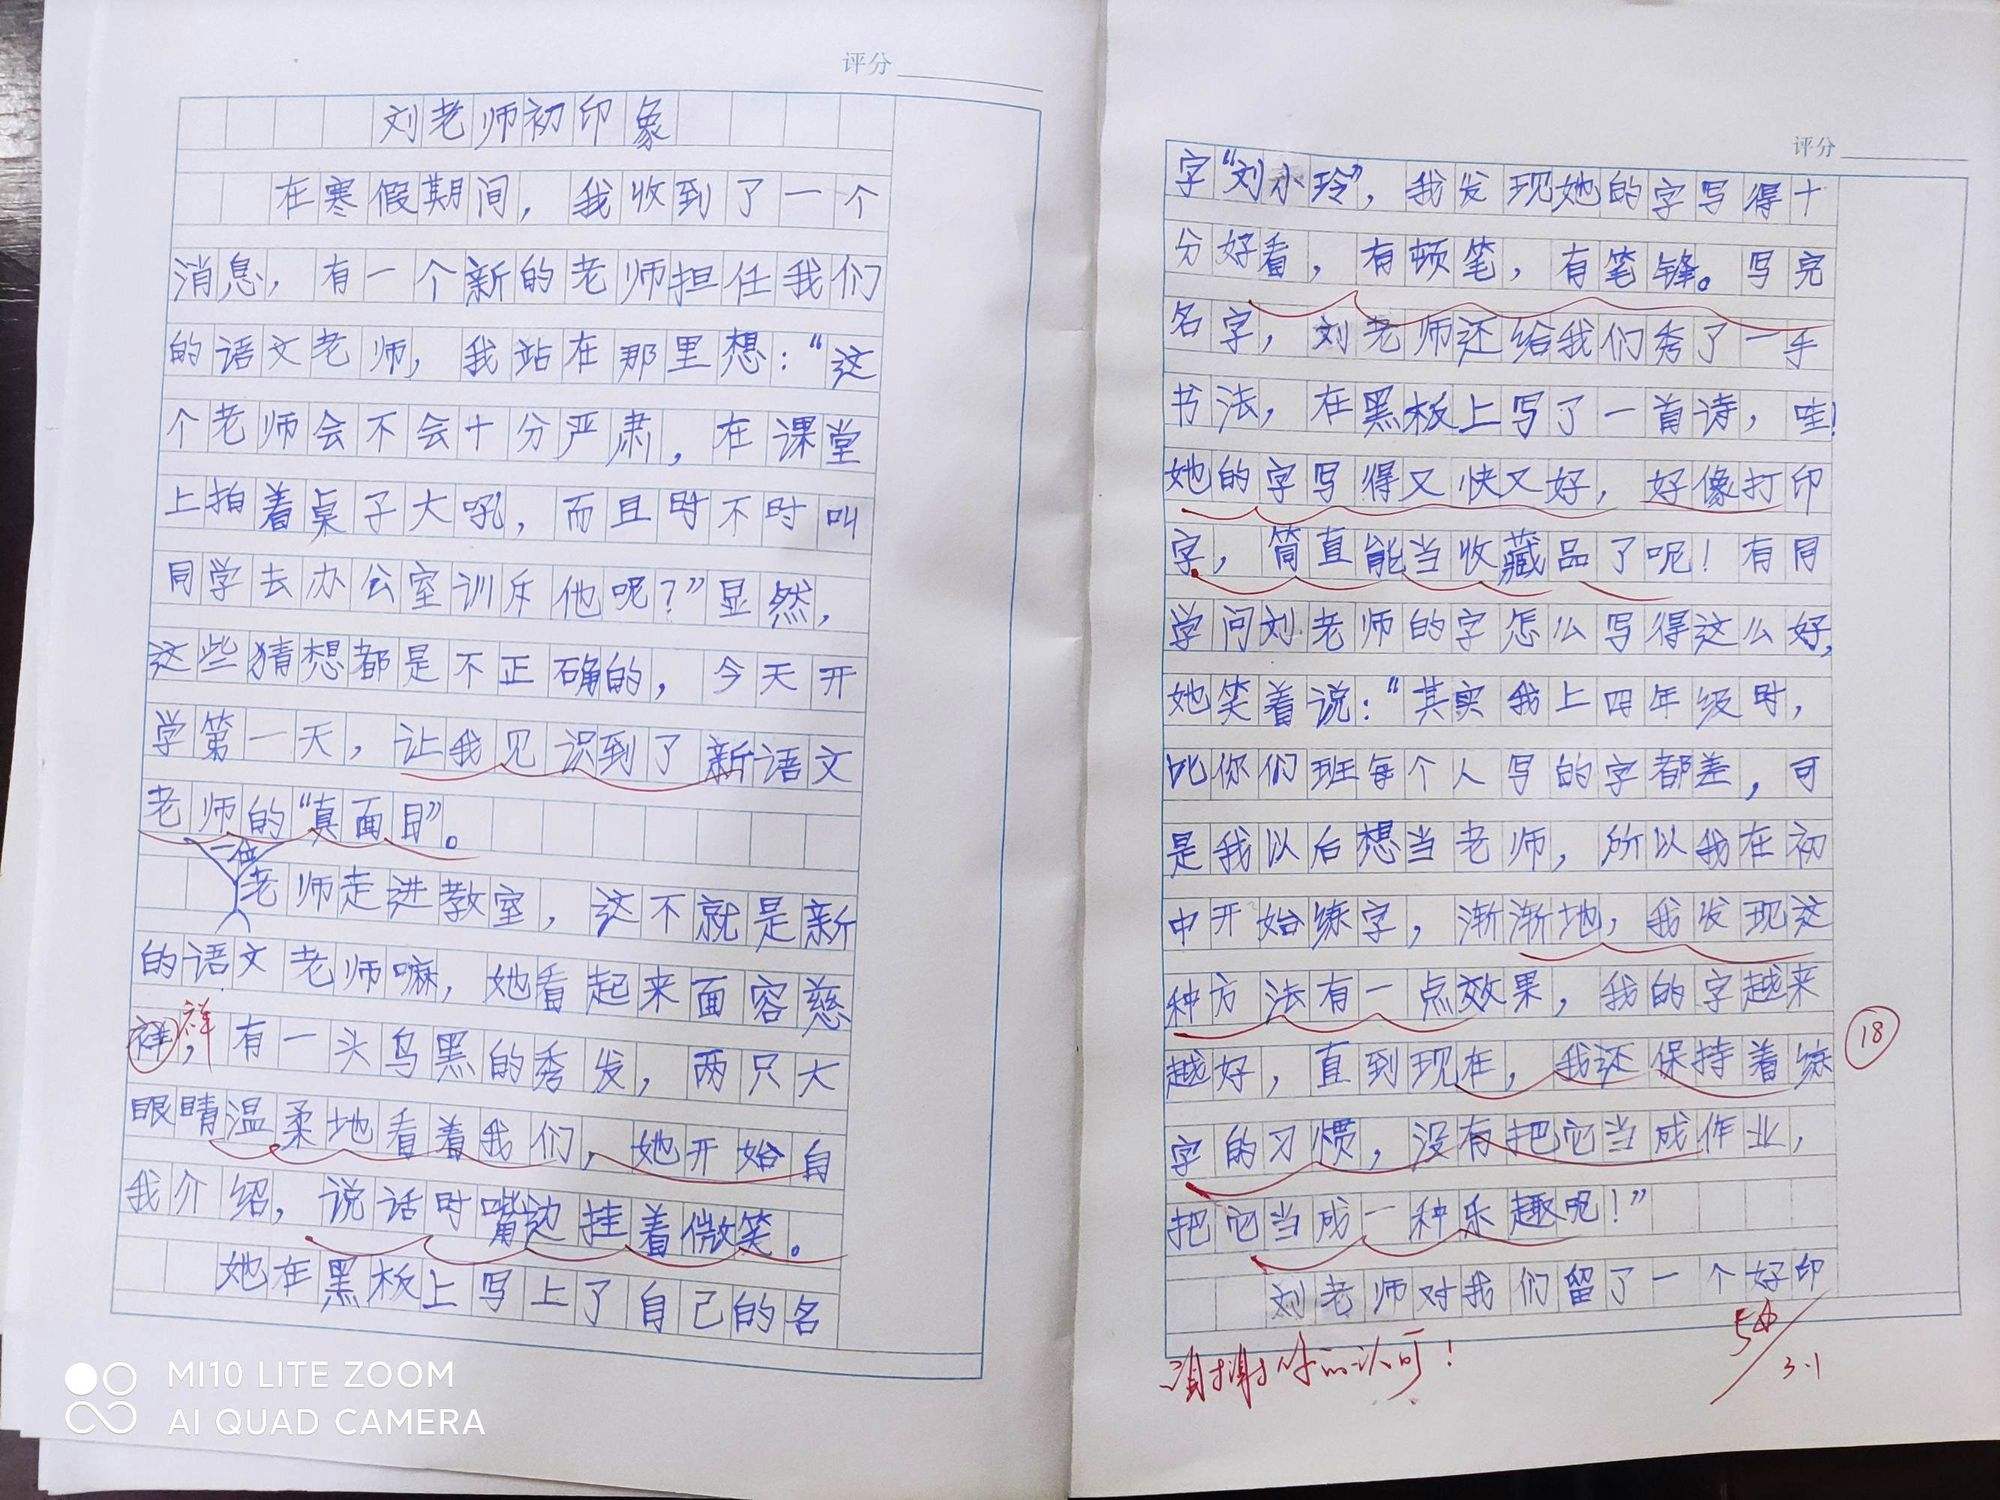 评分
刘老师初印象
在寒假期间，我收到了一个
消息，有一个新的老师担任我们
的语文老师，我站在那里想：“这
个老师会不会十分严肃，在课堂
上拍着桌子大吼，而且时不时叫
同学去办公室训斥他呢？”显然，
这些猜想都是不正确的，今天开
学第一天，让我见识到了新语文
老师的“真面目”。
一位
老师走进教室，这不就是新
的语文老师嘛，她看起来面容慈
祥，有一头乌黑的秀发，两只大
祥
眼睛温柔地看着我们，她开始自
我介绍，说话时嘴边挂着微笑。
她在黑板上写上了自己的名
评分
字“刘小玲”，我发现她的字写得十
分好看，有顿笔，有笔锋。写完
名字，刘老师还给我们秀了一手
书法，在黑板上写了一首诗，哇！
她的字写得又快又好，好像打印
字，简直能当收藏品了呢！有同
学问刘老师的字怎么写得这么好，
她笑着说：“其实我上四年级时，
比你们班每个人写的字都差，可
是我以后想当老师，所以我在初
中开始练字，渐渐地，我发现这
种方法有一点效果，我的字越来
越好，直到现在，我还保持着练
18
字的习惯，没有把它当成作业，
把它当成一种乐趣呢！”
刘老师对我们留了一个好印
谢谢你的认可！
3.1
MI10 LITE ZOOM
AI QUAD CAMERA